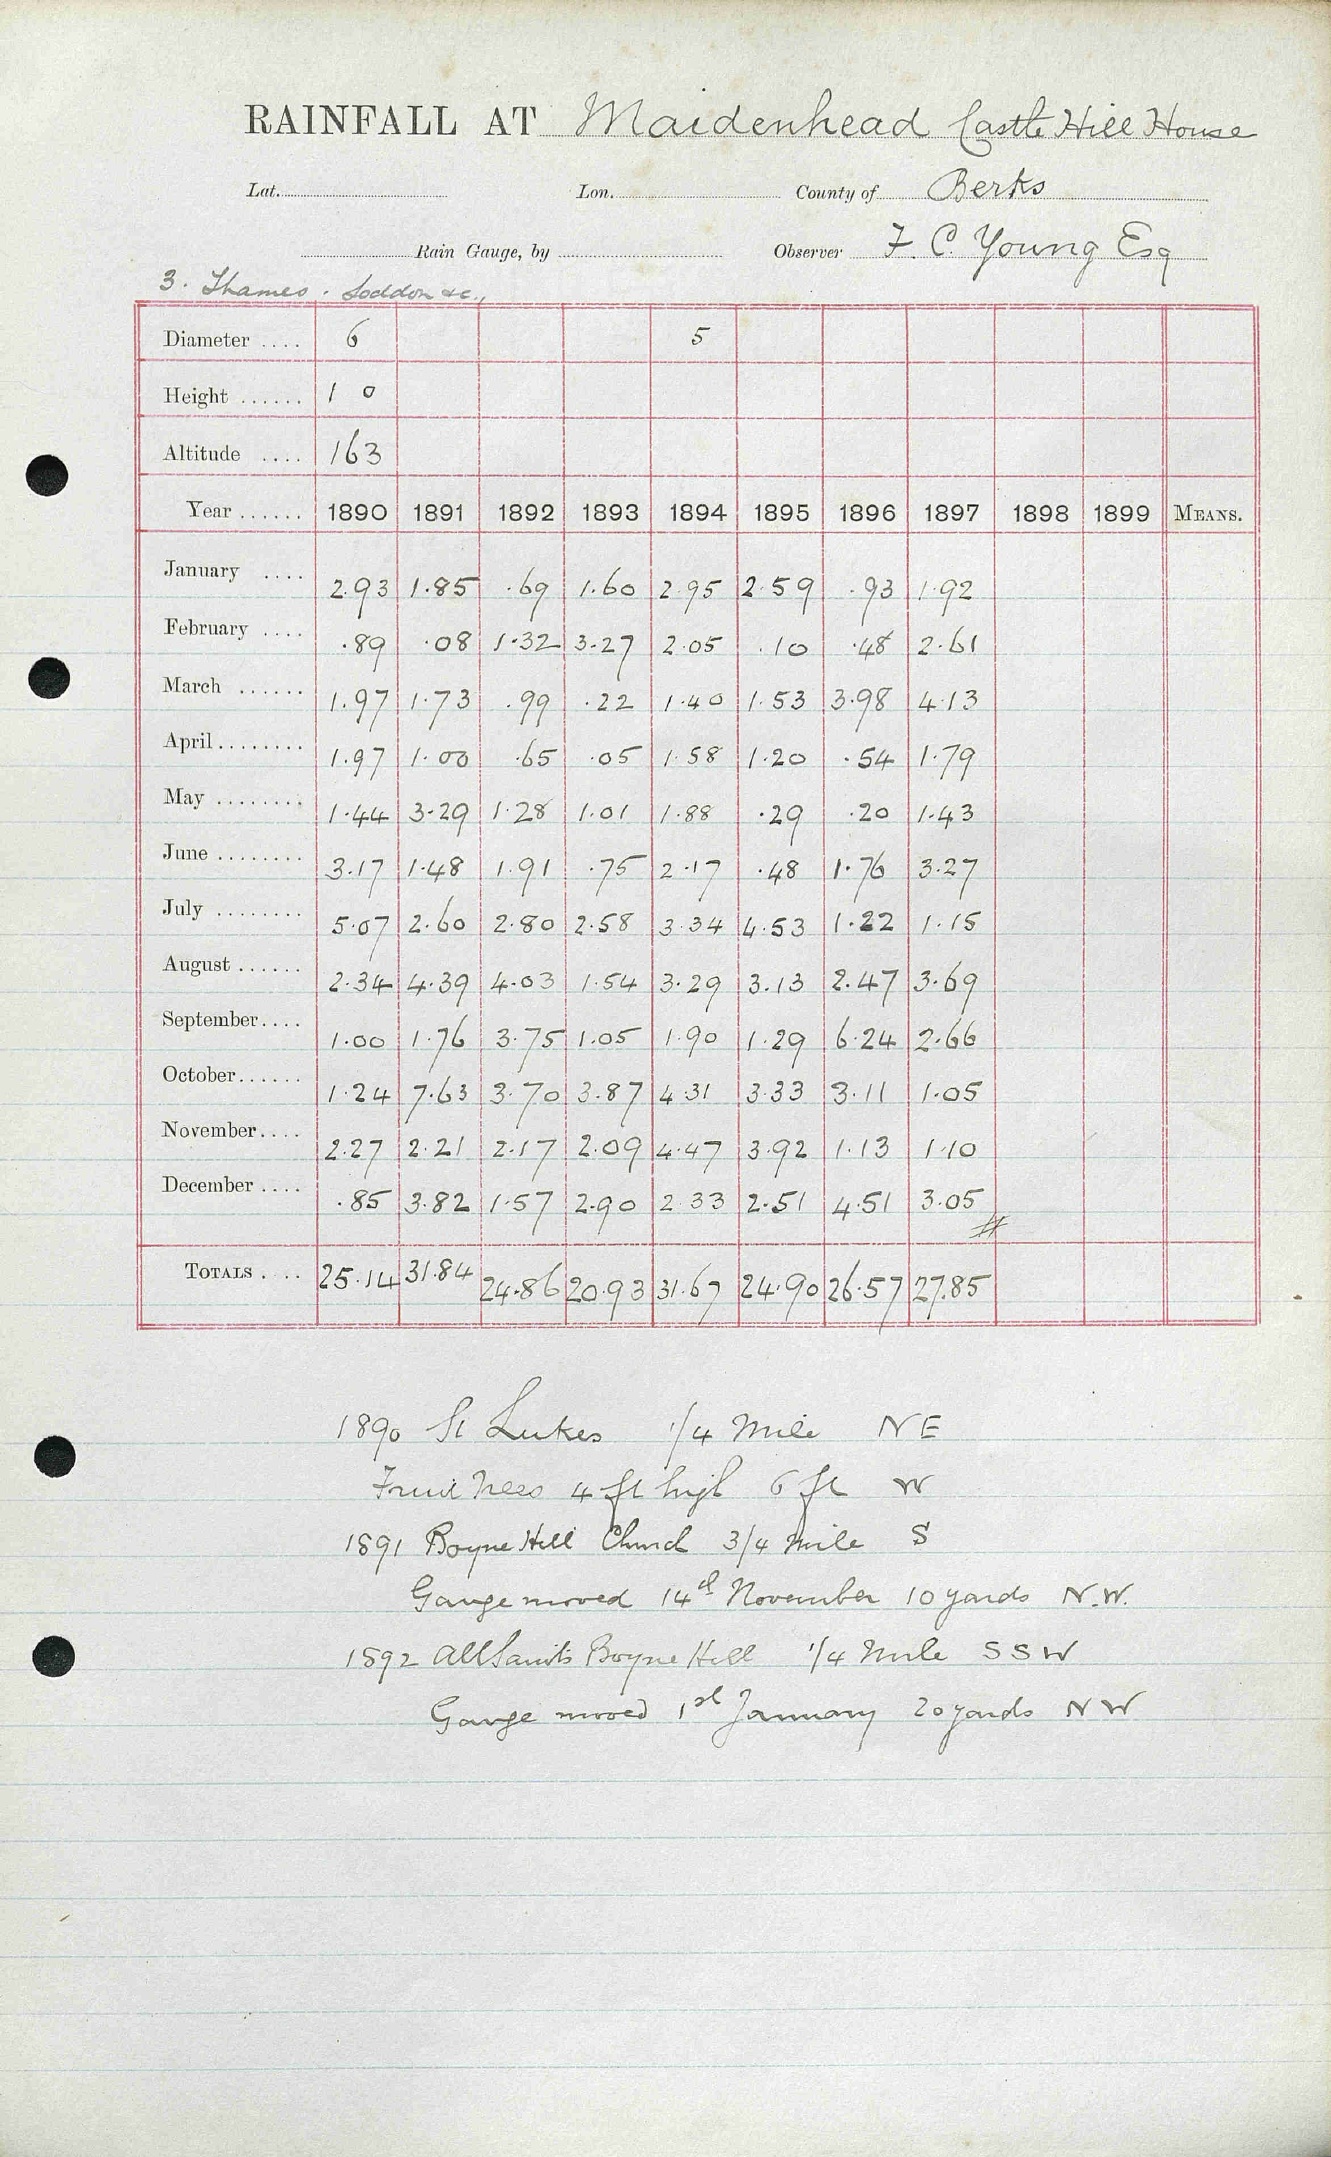 RAINFALL AT Maidenhead Castle Hill House
Lat. Lon. County of Berks
Rain Gauge, by Observer F. C. Young Esq
3. Thames. Loddon &c.,
Diameter .... 6 5
Height ...... 1 0
Altitude .... 163
Year ...... 1890 1891 1892 1893 1894 1895 1896 1897 1898 1899 MEANS.
January .... 2.93 1.85 .69 1.60 2.95 2.59 .93 1.92
February .... .89 .08 1.32 3.27 2.05 .10 .48 2.61
March ...... 1.97 1.73 .99 .22 1.40 1.53 3.98 4.13
April........ 1.97 1.00 .65 .05 1.58 1.20 .54 1.79
May ........ 1.44 3.29 1.28 1.01 1.88 .29 .20 1.43
June ........ 3.17 1.48 1.91 .75 2.17 .48 1.76 3.27
July ........ 5.07 2.60 2.80 2.58 3.34 4.53 1.22 1.15
August ...... 2.34 4.39 4.03 1.54 3.29 3.13 2.47 3.69
September.... 1.00 1.76 3.75 1.05 1.90 1.29 6.24 2.66
October...... 1.24 7.63 3.70 3.87 4.31 3.33 3.11 1.05
November.... 2.27 2.21 2.17 2.09 4.47 3.92 1.13 1.10
December .... .85 3.82 1.57 2.90 2.33 2.51 4.51 3.05
#
TOTALS .... 25.14 31.84 24.86 20.93 31.67 24.90 26.57 27.85
1890 St Lukes 1/4 Mile NE
Fruit trees 4 ft high 6 ft W
1891 Boyne Hill Church 3/4 Mile S
Gauge moved 14th November 10 yards N.W.
1892 All Saints Boyne Hill 1/4 Mile SSW
Gauge moved 1st January 20 yards NW